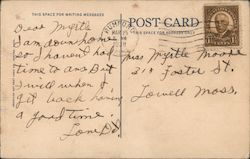 THIS SPACE FOR WRITING MESSAGES
POST CARD
THIS SPACE FOR ADDRESS ONLY
Dear Myrtle
I am down home
so I haven't had
time to ans But
I will when I
get back having
a good time.
Miss Myrtle Moore
Foster St.
Lowell Mass.